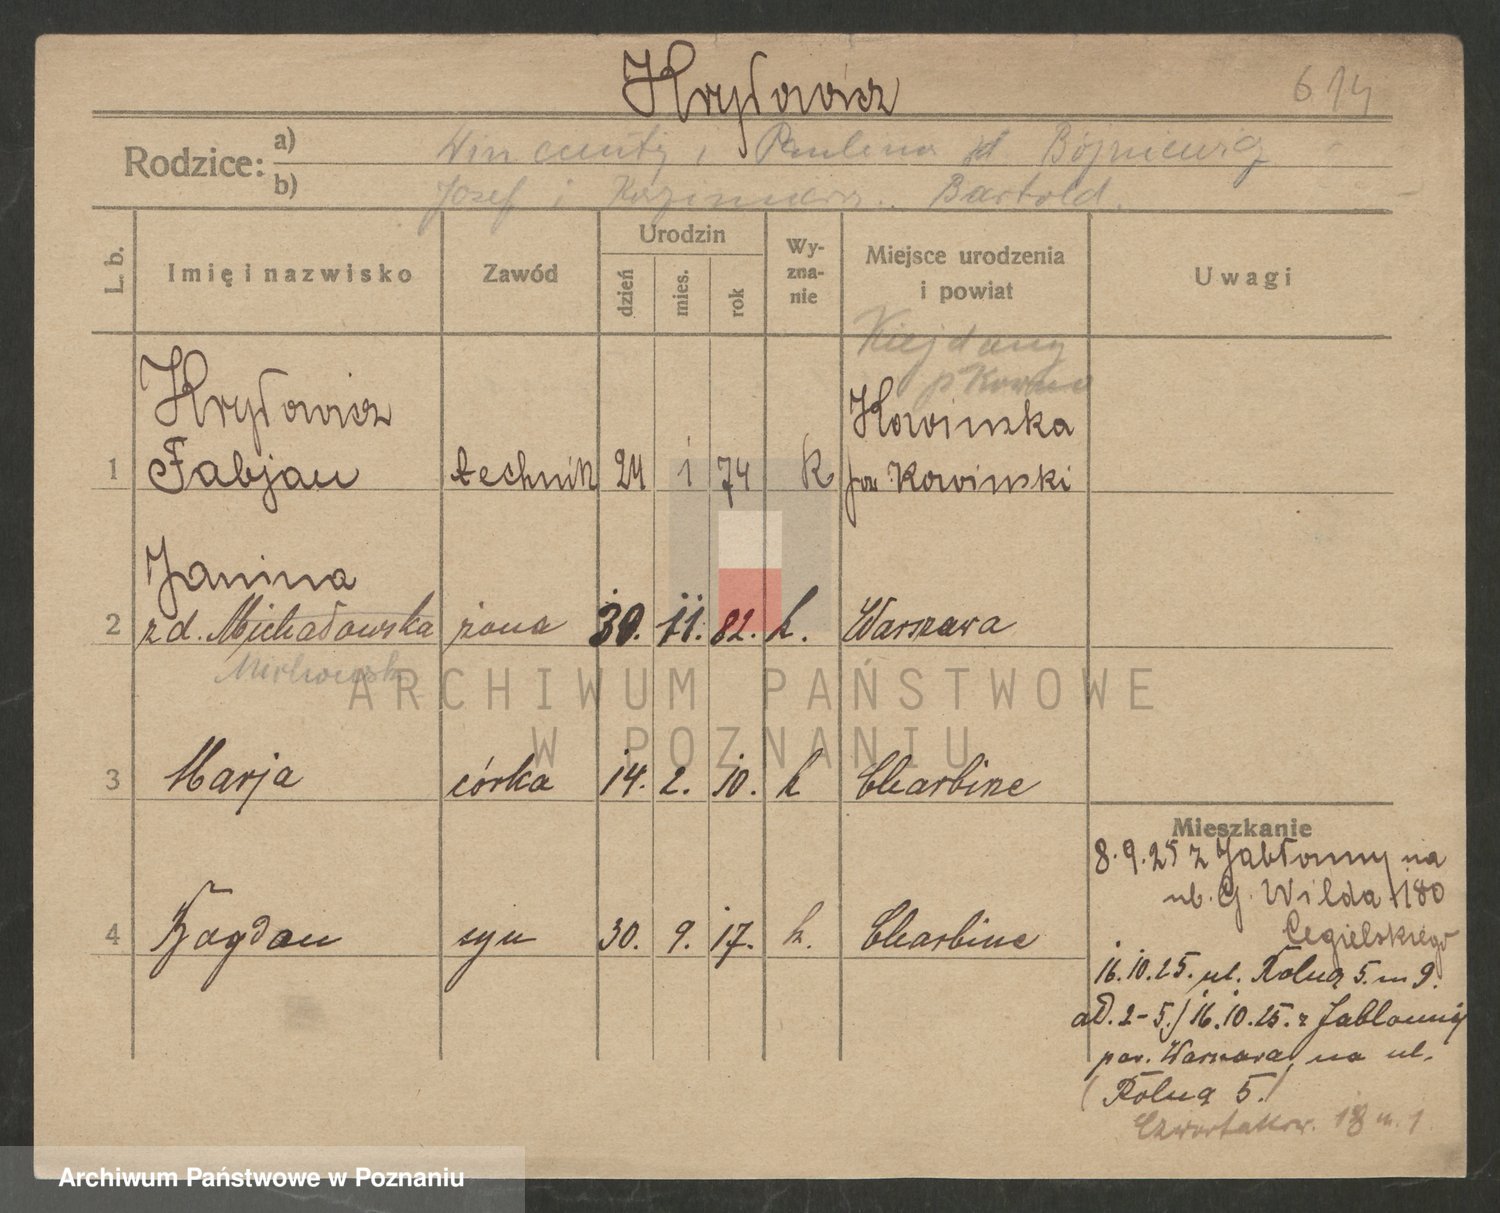 Hryłowicz
6 14
Rodzice: a) Wincenty i Paulina Bójniewicz
b) Józef i Bartold.
L. b.
Imię i nazwisko
Zawód
Urodzin
dzień
mies.
rok
Wy-
zna-
nie
Miejsce urodzenia
i powiat
Uwagi
Kiejdany
p Kowno
Hryłowicz
Kowinska
1 Fabjan technik 24 1 74 k pow. Kowinski
Janina
2 z d. Michałowska żona 30. 11. 82. k. Warszawa
3 Marja córka 14. 2. 10. k Charbine
4 Bogdan syn 30. 9. 17. k. Charbine
Mieszkanie
8.9.25 z Jabłonny na
ul. G. Wilda 180
Cegielskiego
16.10.25. ul. Rolna 5. m 9.
ad. 2-5./ 16.10.25. z Jabłonny
pow. Warszawa, na ul.
(Rolna 5.)
18 m. 1
ARCHIWUM PAŃSTWOWE
W POZNANIU
Archiwum Państwowe w Poznaniu